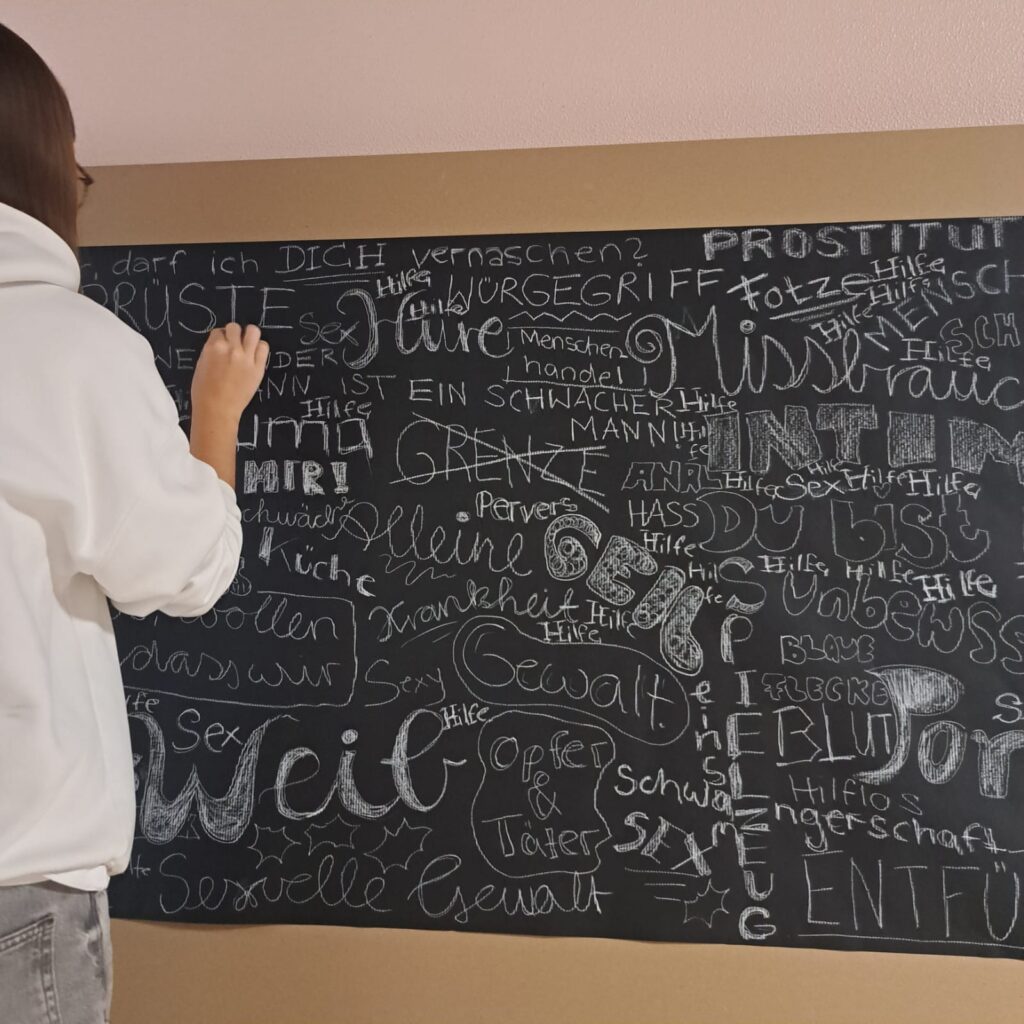 darf ich DICH vernaschen?
PROSTITUT
BRÜSTE
Hilfe
WÜRGEGRIFF
Fotze
Hilfe
Hilfe
MENSCH
Sex
Hure
Hilfe
Menschen
handel
Missbrauc
Hilfe
SCH
Hilfe
IST EIN SCHWACHER
MANN
Hilfe
Hilfe
GRENZE
INTIM
MIR!
ANAL
Hilfe
Sex
Hilfe
Hilfe
Hilfe
Pervers
HASS
Du bist
Alleine
GEIL
Hilfe
Küche
Hilfe
Hilfe
Hilfe
Krankheit
Hilfe
Hilfe
SPIELZEUG
Unbewss
wollen
dass wir
Sexy
Gewalt
BLAUE
FLECKE
Sex
Weib
Hilfe
einsam
BLUT
Por
Opfer
&
Täter
Schwanz
Hilflos
ngerschaft
SEX
Sexuelle Gewalt
ENTFÜ